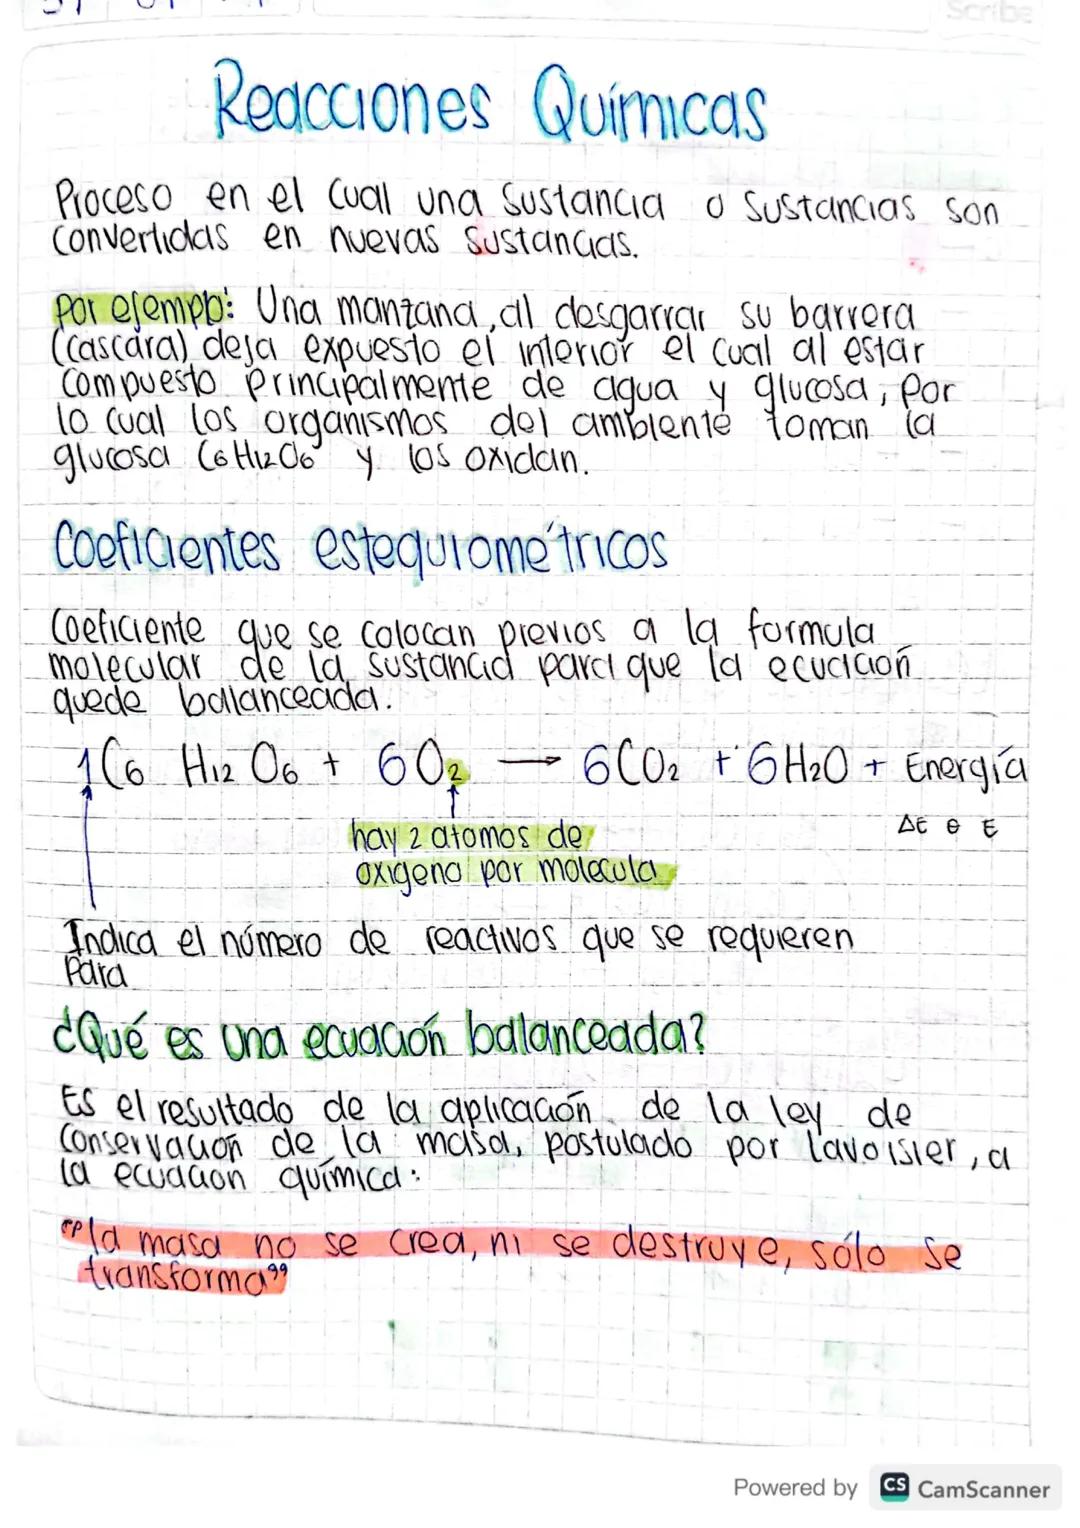 Scribe
Reacciones Químicas
Proceso en el cual una sustancia o sustancias son
convertidas en nuevas sustancias.
Por ejemplo: Una manzana, al desgarrar su barrera
(cáscara) deja expuesto el interior el cual al estar
compuesto principalmente de agua y glucosa, por
lo cual los organismos del ambiente toman la
glucosa C6H12O6 y los oxidan.
Coeficientes estequiométricos
Coeficiente que se colocan previos a la formula
molecular de la sustancia para que la ecuación
quede balanceada.
1C6 H12 O6 + 6O2 → 6CO2 + 6H2O + Energía
hay 2 atomos de
ΔE θ E
oxigeno por molecula
Indica el número de reactivos que se requieren
Para
¿Qué es una ecuación balanceada?
Es el resultado de la aplicación de la ley de
conservación de la masa, postulado por Lavoisier, a
la ecuación química:
"la masa no se crea, ni se destruye, sólo se
transforma"
Powered by CS CamScanner